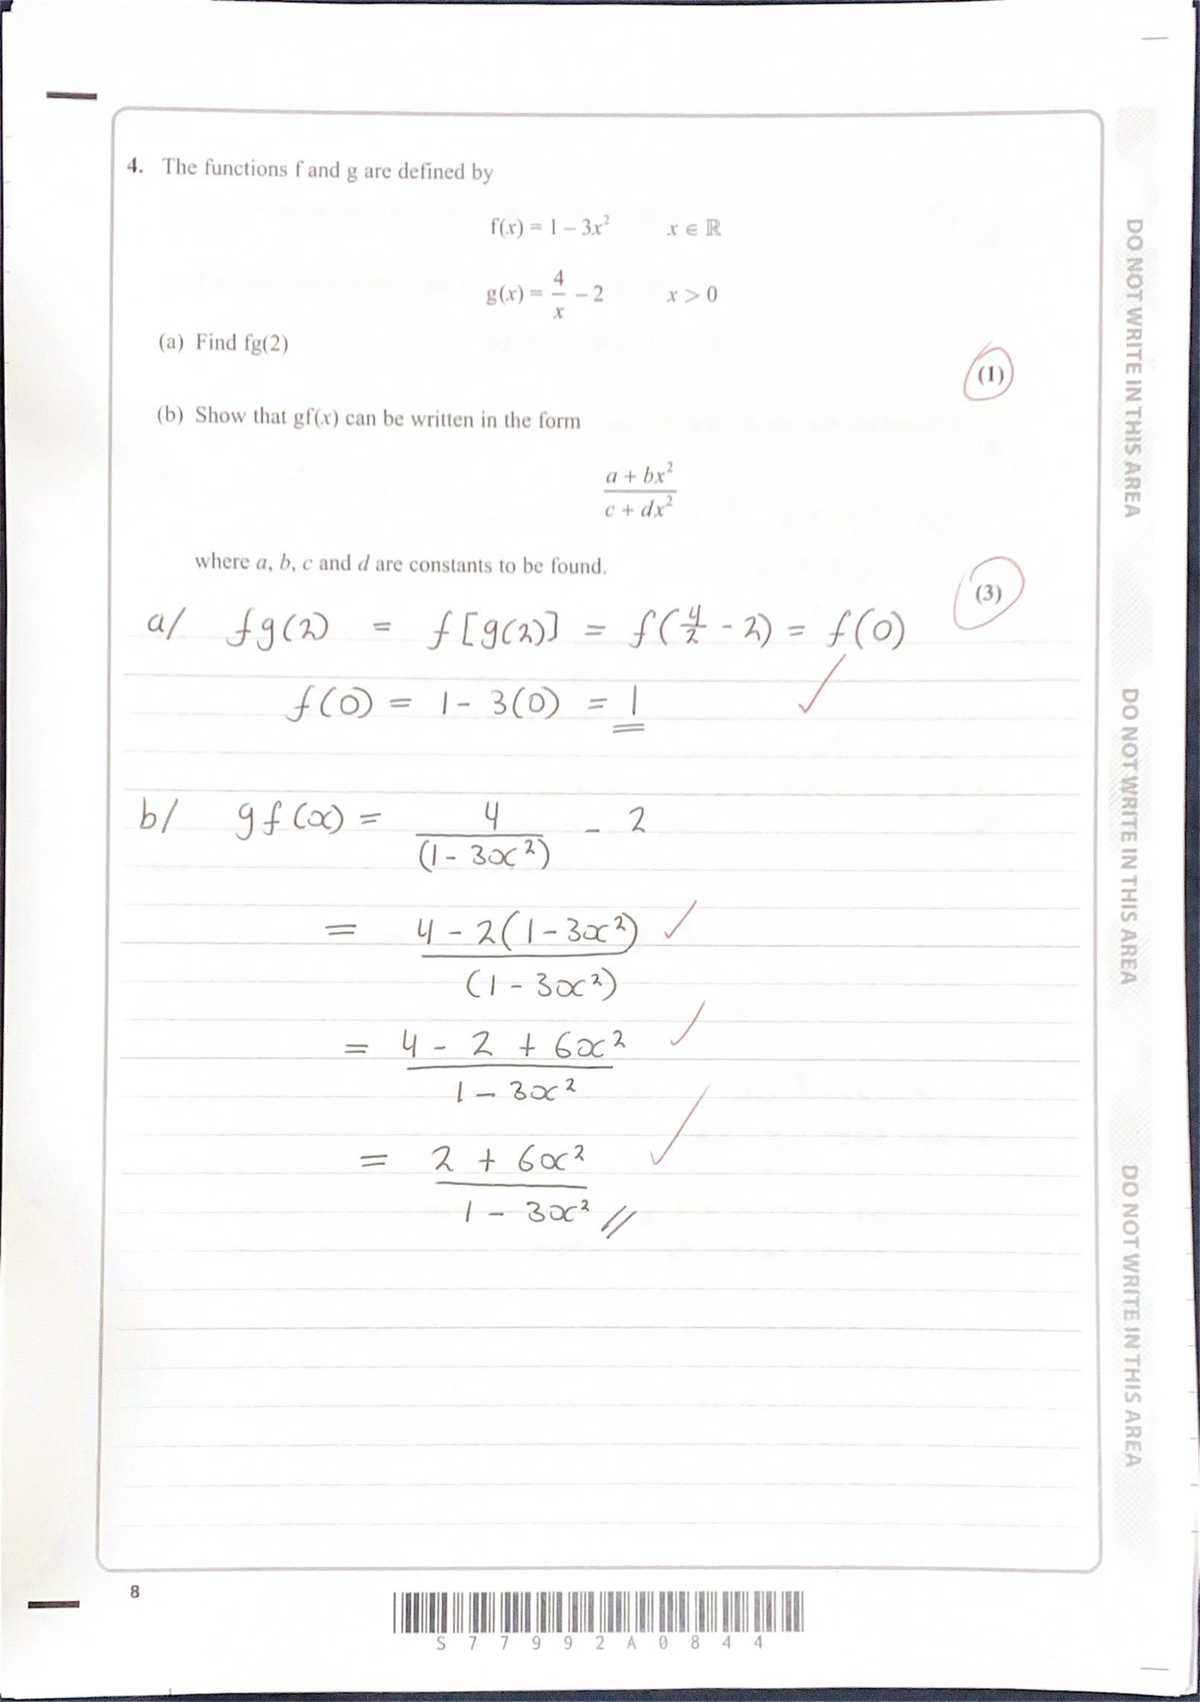 4. The functions f and g are defined by
f(x) = 1 – 3x² x ∈ ℝ
g(x) = 4/x – 2 x > 0
(a) Find fg(2)
(1)
(b) Show that gf(x) can be written in the form
(a + bx²)/(c + dx²)
where a, b, c and d are constants to be found.
(3)
a/ fg(2) = f[g(2)] = f(4/2 - 2) = f(0)
f(0) = 1 - 3(0) = 1
b/ gf(x) = 4/(1 - 3x²) - 2
= (4 - 2(1 - 3x²))/(1 - 3x²)
= (4 - 2 + 6x²)/(1 - 3x²)
= (2 + 6x²)/(1 - 3x²) //
8
S 7 7 9 9 2 A 0 8 4 4
DO NOT WRITE IN THIS AREA
DO NOT WRITE IN THIS AREA
DO NOT WRITE IN THIS AREA